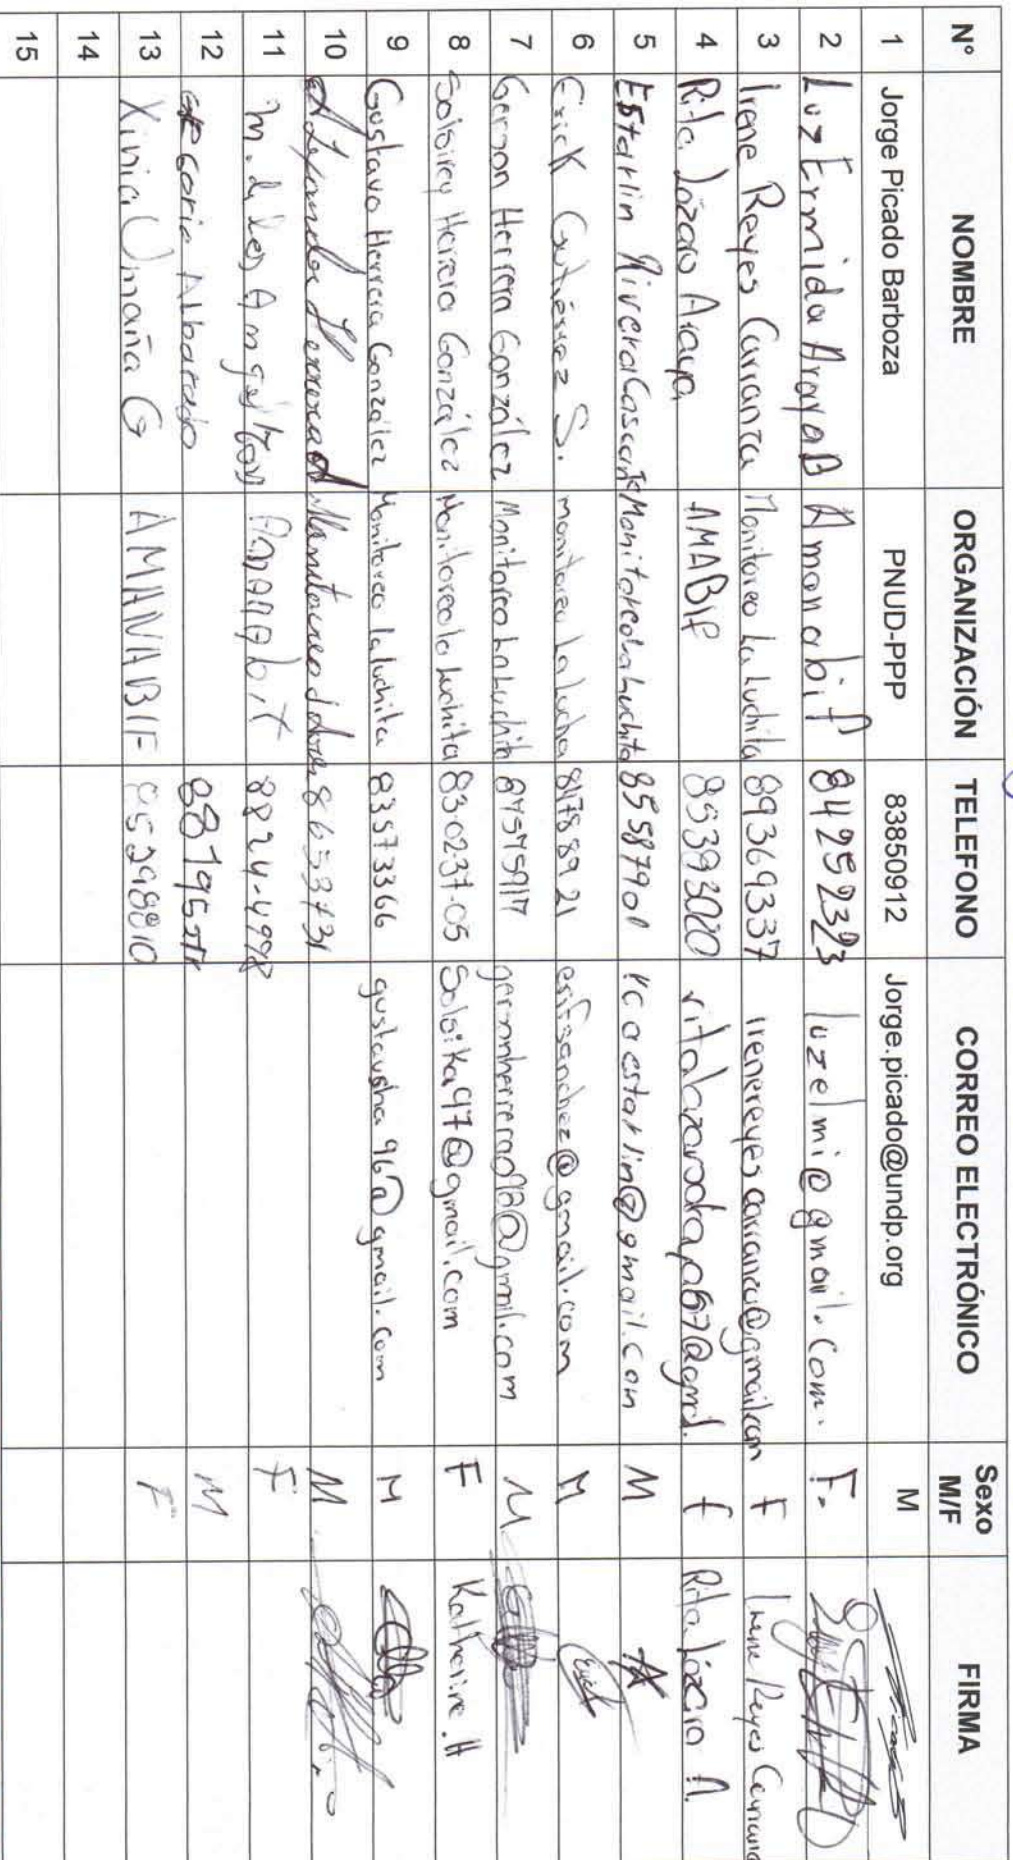 N° NOMBRE ORGANIZACIÓN TELEFONO CORREO ELECTRÓNICO Sexo M/F FIRMA
1 Jorge Picado Barboza PNUD-PPP 83850912 Jorge.picado@undp.org M
2 Luz Ermida Araya B Amanabif 84252323 luzelmi@gmail.com. F.
3 Irene Reyes Carranza Monitoreo La Luchita 89369337 irenereyescarranza@gmail.com F Irene Reyes Carranza
4 Rita Lázaro Araya AMABIF 85393020 f Rita Lázaro A.
5 Estarlin Rivera Cascante Monitoreo La Luchita 85587901 rcaestarlin@gmail.com M
6 Erick Gutiérrez S. monitoreo La Lucha 81788921 M Erick
7 Gerson Herrera González Monitoreo La Luchita M
8 Herrera González Monitoreo la Luchita 83-02-37-05 Soloika97@gmail.com F Katherine.H
9 Gustavo Herrera González Monitoreo la luchita 83573366 gustavoha96@gmail.com M
10 M
11 M. de los Angeles 8824-4998 F
12 M
13 Xinia Umaña G AMANABIF 85298810 F
14
15